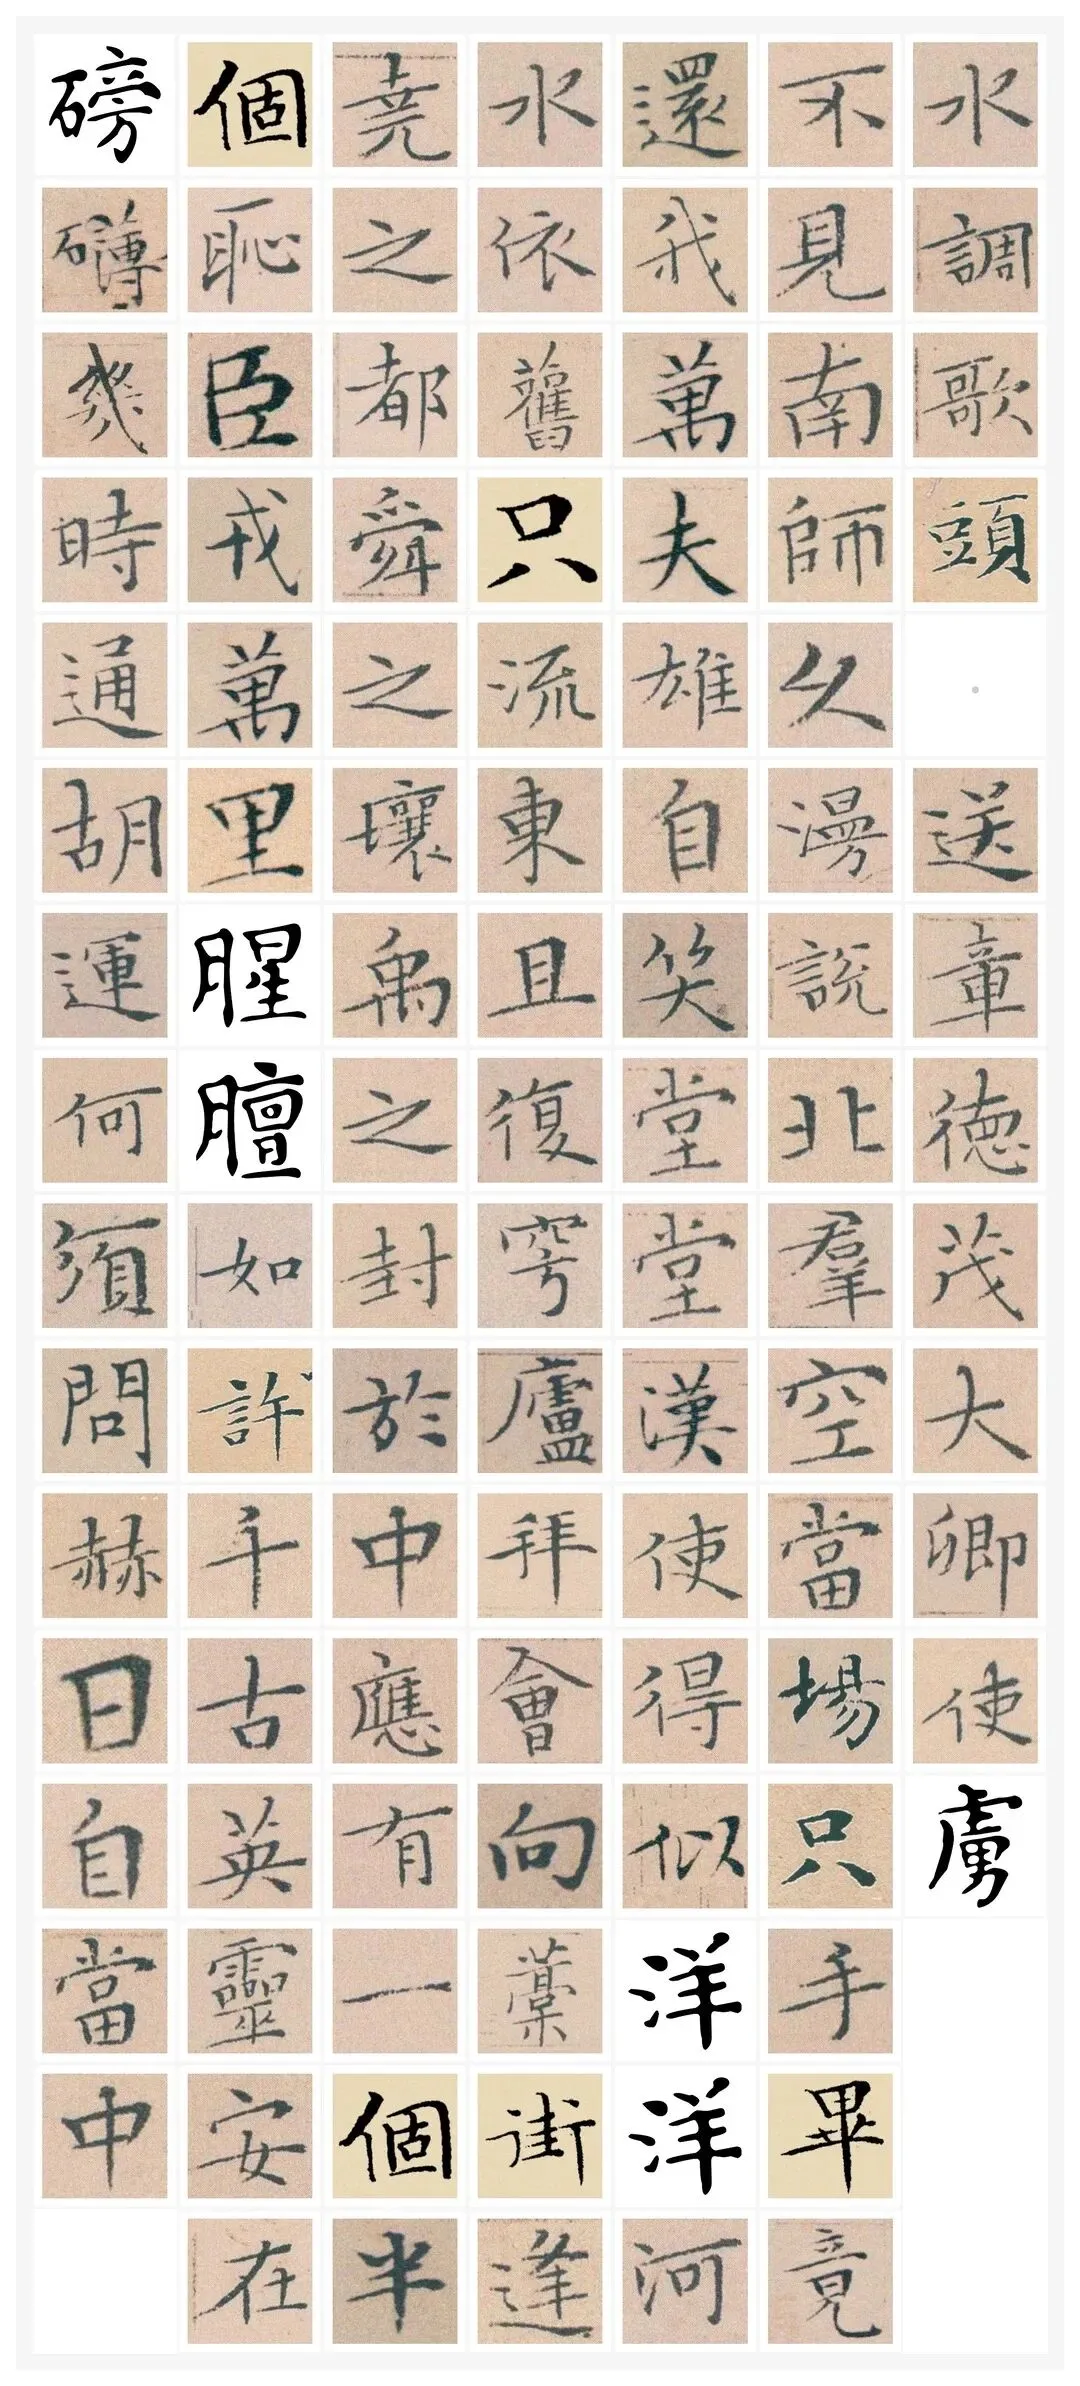 水調歌頭·送章德茂大卿使虜
不見南師久漫說北羣空當場隻手畢竟
還我萬夫雄自笑堂堂漢使得似洋洋河
水依舊只流東且復穹廬拜會向藁街逢
堯之都舜之壤禹之封於中應有一個半
個恥臣戎萬里腥膻如許千古英靈安在
磅礴幾時通胡運何須問赫日自當中